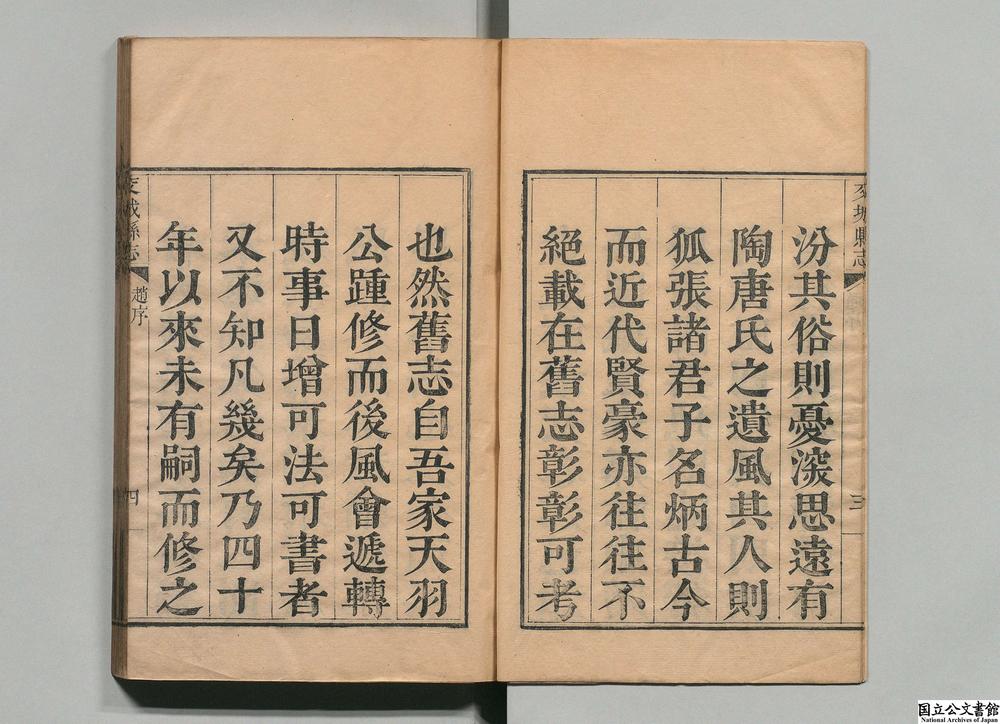 交城縣志
三
汾其俗則憂深思遠有
陶唐氏之遺風其人則
狐張諸君子名炳古今
而近代賢豪亦往往不
絕載在舊志彰彰可考
也然舊志自吾家天羽
公踵修而後風會遞轉
時事日增可法可書者
又不知凡幾矣乃四十
年以來未有嗣而修之
交城縣志
趙序
四
国立公文書館
National Archives of Japan